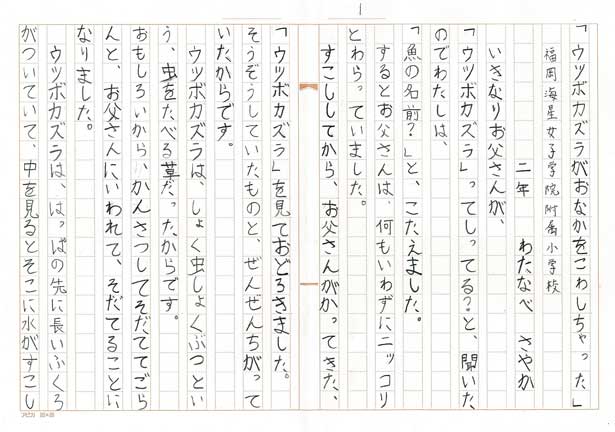 1
「ウツボカズラがおなかをこわしちゃった」
福岡海星女子学院附属小学校
二年 わたなべ さやか
いきなりお父さんが、
「ウツボカズラ」ってしってる?と、聞いた
のでわたしは、
「魚の名前?」と、こたえました。
するとお父さんは、何もいわずにニッコリ
とわらっていました。
すこししてから、お父さんがかってきた、
「ウツボカズラ」を見ておどろきました。
そうぞうしていたものと、ぜんぜんちがって
いたからです。
ウツボカズラは、しょく虫しょくぶつとい
う、虫をたべる草だったからです。
おもしろいから、かんさつしてそだててごら
んと、お父さんにいわれて、そだてることに
なりました。
ウツボカズラは、はっぱの先に長いふくろ
がついていて、中を見るとそこに水がすこし